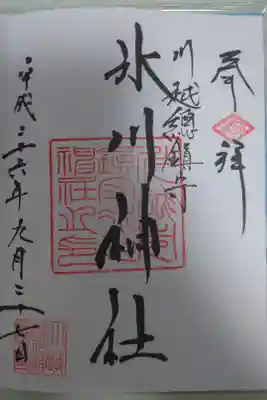 奉拝
川越總鎮守
氷川神社
平成二十六年九月二十七日